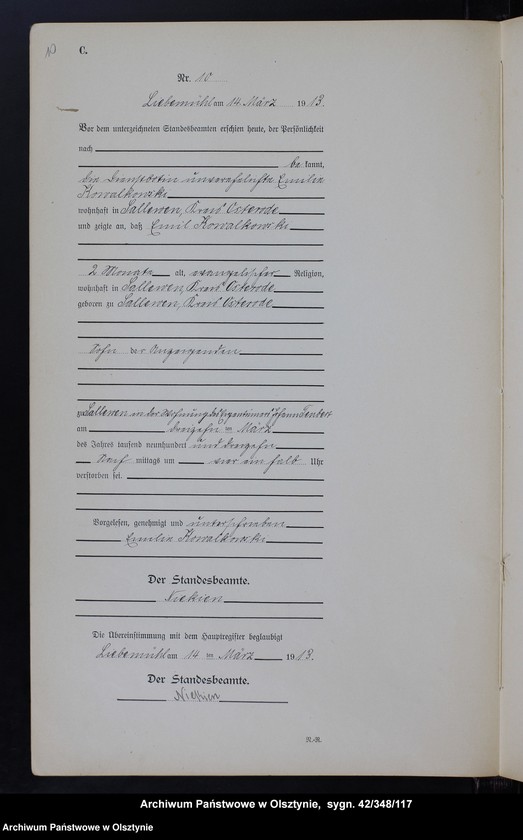 10 C.
Nr. 10
Liebemühl am 14. März 1913.
Vor dem unterzeichneten Standesbeamten erschien heute, der Persönlichkeit
nach
be kannt,
die unverehelichte Emilie
Kowalkowski
wohnhaft in Sallewen, Kreis Osterode
und zeigte an, daß Emil Kowalkowski
2 Monate alt, evangelischer Religion,
wohnhaft in Sallewen, Kreis Osterode
geboren zu Sallewen, Kreis Osterode
Sohn der Anzeigenden
zu Sallewen in der Wohnung des Johann
am dreizehn ten März
des Jahres tausend neunhundert und dreizehn
Nach mittags um vier ein halb Uhr
verstorben sei.
Vorgelesen, genehmigt und unterschrieben
Emilie Kowalkowski
Der Standesbeamte.
Die Übereinstimmung mit dem Hauptregister beglaubigt
Liebemühl am 14 ten März 1913.
Der Standesbeamte.
N.-R.
Archiwum Państwowe w Olsztynie, sygn. 42/348/117
Archiwum Państwowe w Olsztynie